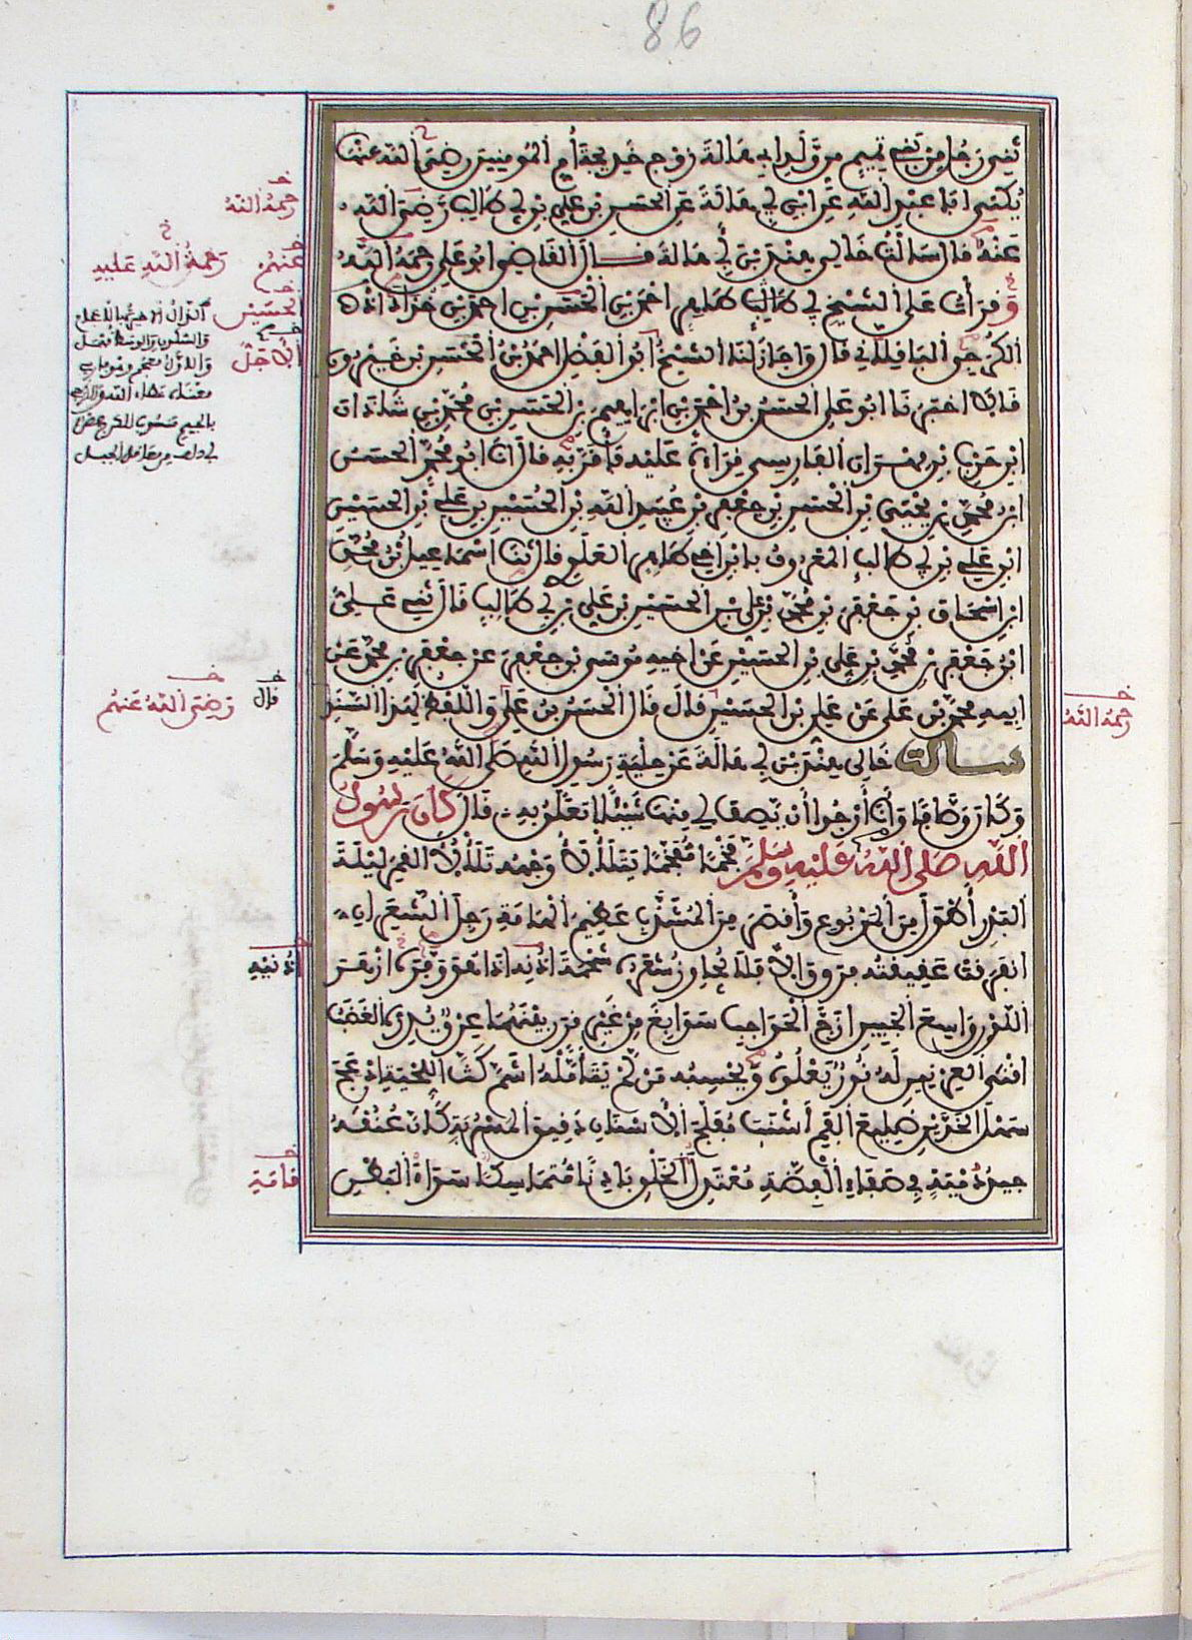 86
ثني رجل من بني تميم من ولد ابي هالة زوج خديجة أم المومنين رضي الله عنها
يكنى ابا عبد الله عن ابن لابي هالة عن الحسن بن علي بن ابي طالب رضي الله
عنه قال سالت خالي هند بن ابي هالة قال القاضي ابو علي رحمه الله
وقرأت على الشيخ ابي طاهر احمد بن الحسن بن احمد بن خذاداذ
الكرجي الباقلاني قال واجاز لنا الشيخ ابو الفضل احمد بن الحسن بن خيرون
قالا اخبرنا ابو علي الحسن بن احمد بن ابراهيم بن الحسن بن محمد بن شاذان
ابن حرب بن مهران الفارسي قراءة عليه فأقر به قال انا ابو محمد الحسن
ابن محمد بن يحيى بن الحسن بن جعفر بن عبيد الله بن الحسين بن علي بن الحسين
ابن علي بن ابي طالب المعروف بابن اخي طاهر العلوي قال ثنا اسماعيل بن محمد
ابن اسحاق بن جعفر بن محمد بن علي بن الحسين بن علي بن ابي طالب قال ثني علي
ابن جعفر بن محمد بن علي بن الحسين عن اخيه موسى بن جعفر عن جعفر بن محمد عن
ابيه محمد بن علي عن علي بن الحسين قال قال الحسن بن علي واللفظ لهذا السند
سالت خالي هند بن ابي هالة عن حلية رسول الله صلى الله عليه وسلم
وكان وصافا وأنا أرجوا أن يصف لي منها شيئا اتعلق به قال كان رسول
الله صلى الله عليه وسلم فخما مفخما يتلألأ وجهه تلألؤ القمر ليلة
البدر أطول من المربوع وأقصر من المشذب عظيم الهامة رجل الشعر ان
انفرقت عقيقته فرق والا فلا يجاوز شعره شحمة اذنه اذا هو وفره ازهر
اللون واسع الجبين ازج الحواجب سوابغ من غير قرن بينهما عرق يدره الغضب
اقنى العرنين له نور يعلوه ويحسبه من لم يتأمله اشم كث اللحية ادعج
سهل الخدين ضليع الفم أشنب مفلج الاسنان دقيق المسربة كان عنقه
جيد دمية في صفاء الفضة معتدل الخلق بادنا متماسكا سواء البطن
رحمه الله
عنهم
رحمة الله عليه
الحسين
قال
رضي الله عنهم
رحمه الله
اذنيه
قامة